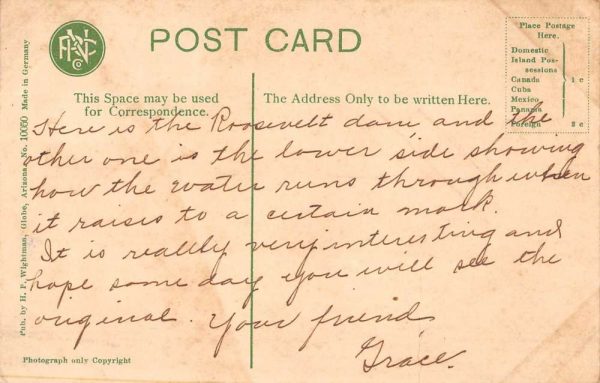 ANPVC
Co
POST CARD
Place Postage
Here.
Domestic
Island Pos-
sessions
Canada
Cuba
Mexico
Panama
1 c
Foreign
2 c
This Space may be used
for Correspondence.
The Address Only to be written Here.
Here is the Roosevelt dam and the
other one is the lower side showing
how the water runs through when
it raises to a certain mark.
It is really very interesting and
hope some day you will see the
original. Your friend
Grace.
Pub. by H. F. Wightman, Globe, Arizona. No. 10050 Made in Germany
Photograph only Copyright